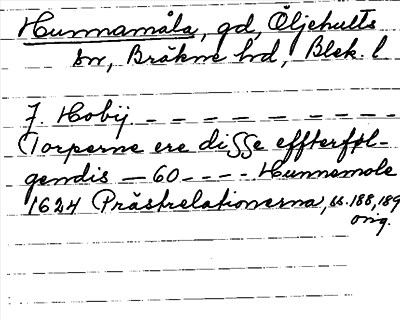 Hunnamåla, gd, Öljehults
sn, Bräkne hd, Blek. l
J. Hobij. — — — — — — — — —
Torperne ere disse effterføl-
gendis — 60 - - - - Hunnemole
1624 Prästrelationerna, ss. 188, 189
orig.